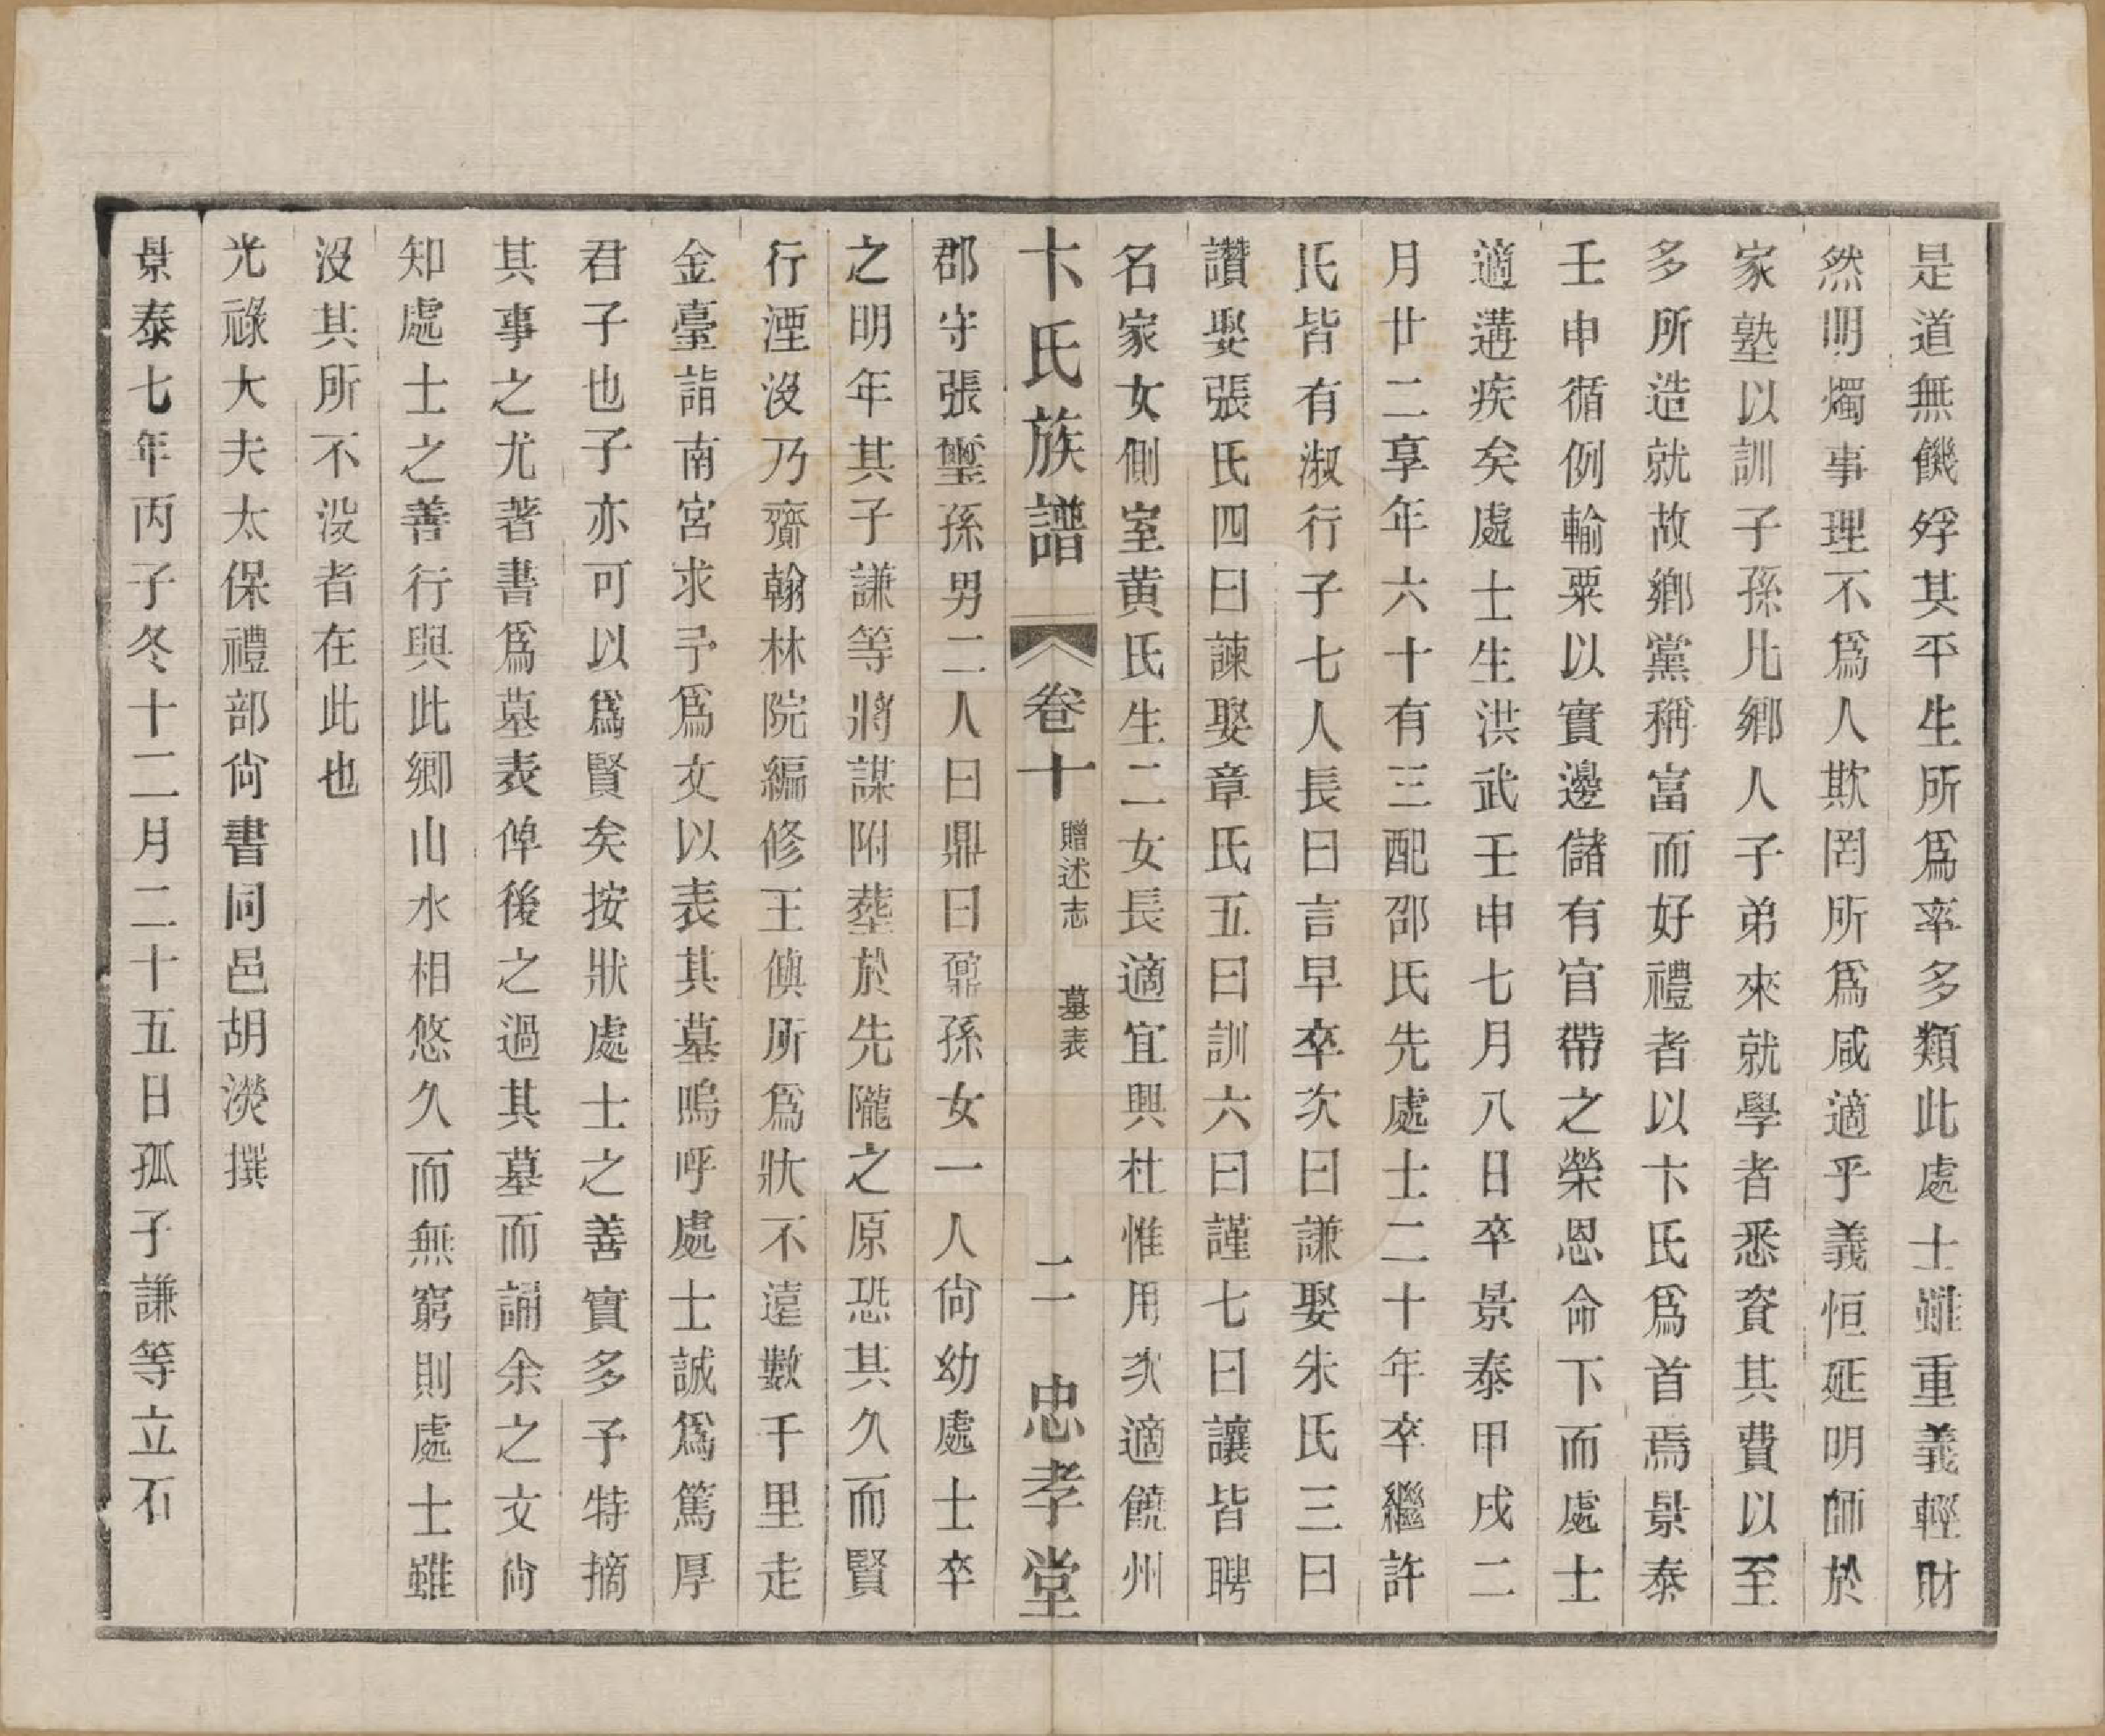 是道無饑殍其平生所爲率多類此處士雖重義輕財
然明燭事理不爲人欺罔所爲咸適乎義恒延明師於
家塾以訓子孫凡鄉人子弟來就學者悉資其費以至
多所造就故鄉黨稱富而好禮者以卞氏爲首焉景泰
壬申循例輸粟以實邊儲有官帶之榮恩命下而處士
適遘疾矣處士生洪武壬申七月八日卒景泰甲戌二
月廿二享年六十有三配邵氏先處士二十年卒繼許
氏皆有淑行子七人長曰言早卒次曰謙娶朱氏三曰
讚娶張氏四曰諫娶章氏五曰訓六曰謹七曰讓皆聘
名家女側室黄氏生二女長適宜興杜惟用次適饒州
卞氏族譜 卷十 贈述志 墓表 二 忠孝堂
郡守張璽孫男二人曰鼎曰鼐孫女一人尙幼處士卒
之明年其子謙等將謀附葬於先隴之原恐其久而賢
行湮沒乃齎翰林院編修王㒹所爲狀不遠數千里走
金臺詣南宮求予爲文以表其墓嗚呼處士誠爲篤厚
君子也子亦可以爲賢矣按狀處士之善實多予特摘
其事之尤著書爲墓表俾後之過其墓而誦余之文尙
知處士之善行與此鄉山水相悠久而無窮則處士雖
沒其所不没者在此也
光祿大夫太保禮部尙書同邑胡濙撰
景泰七年丙子冬十二月二十五日孤子謙等立石